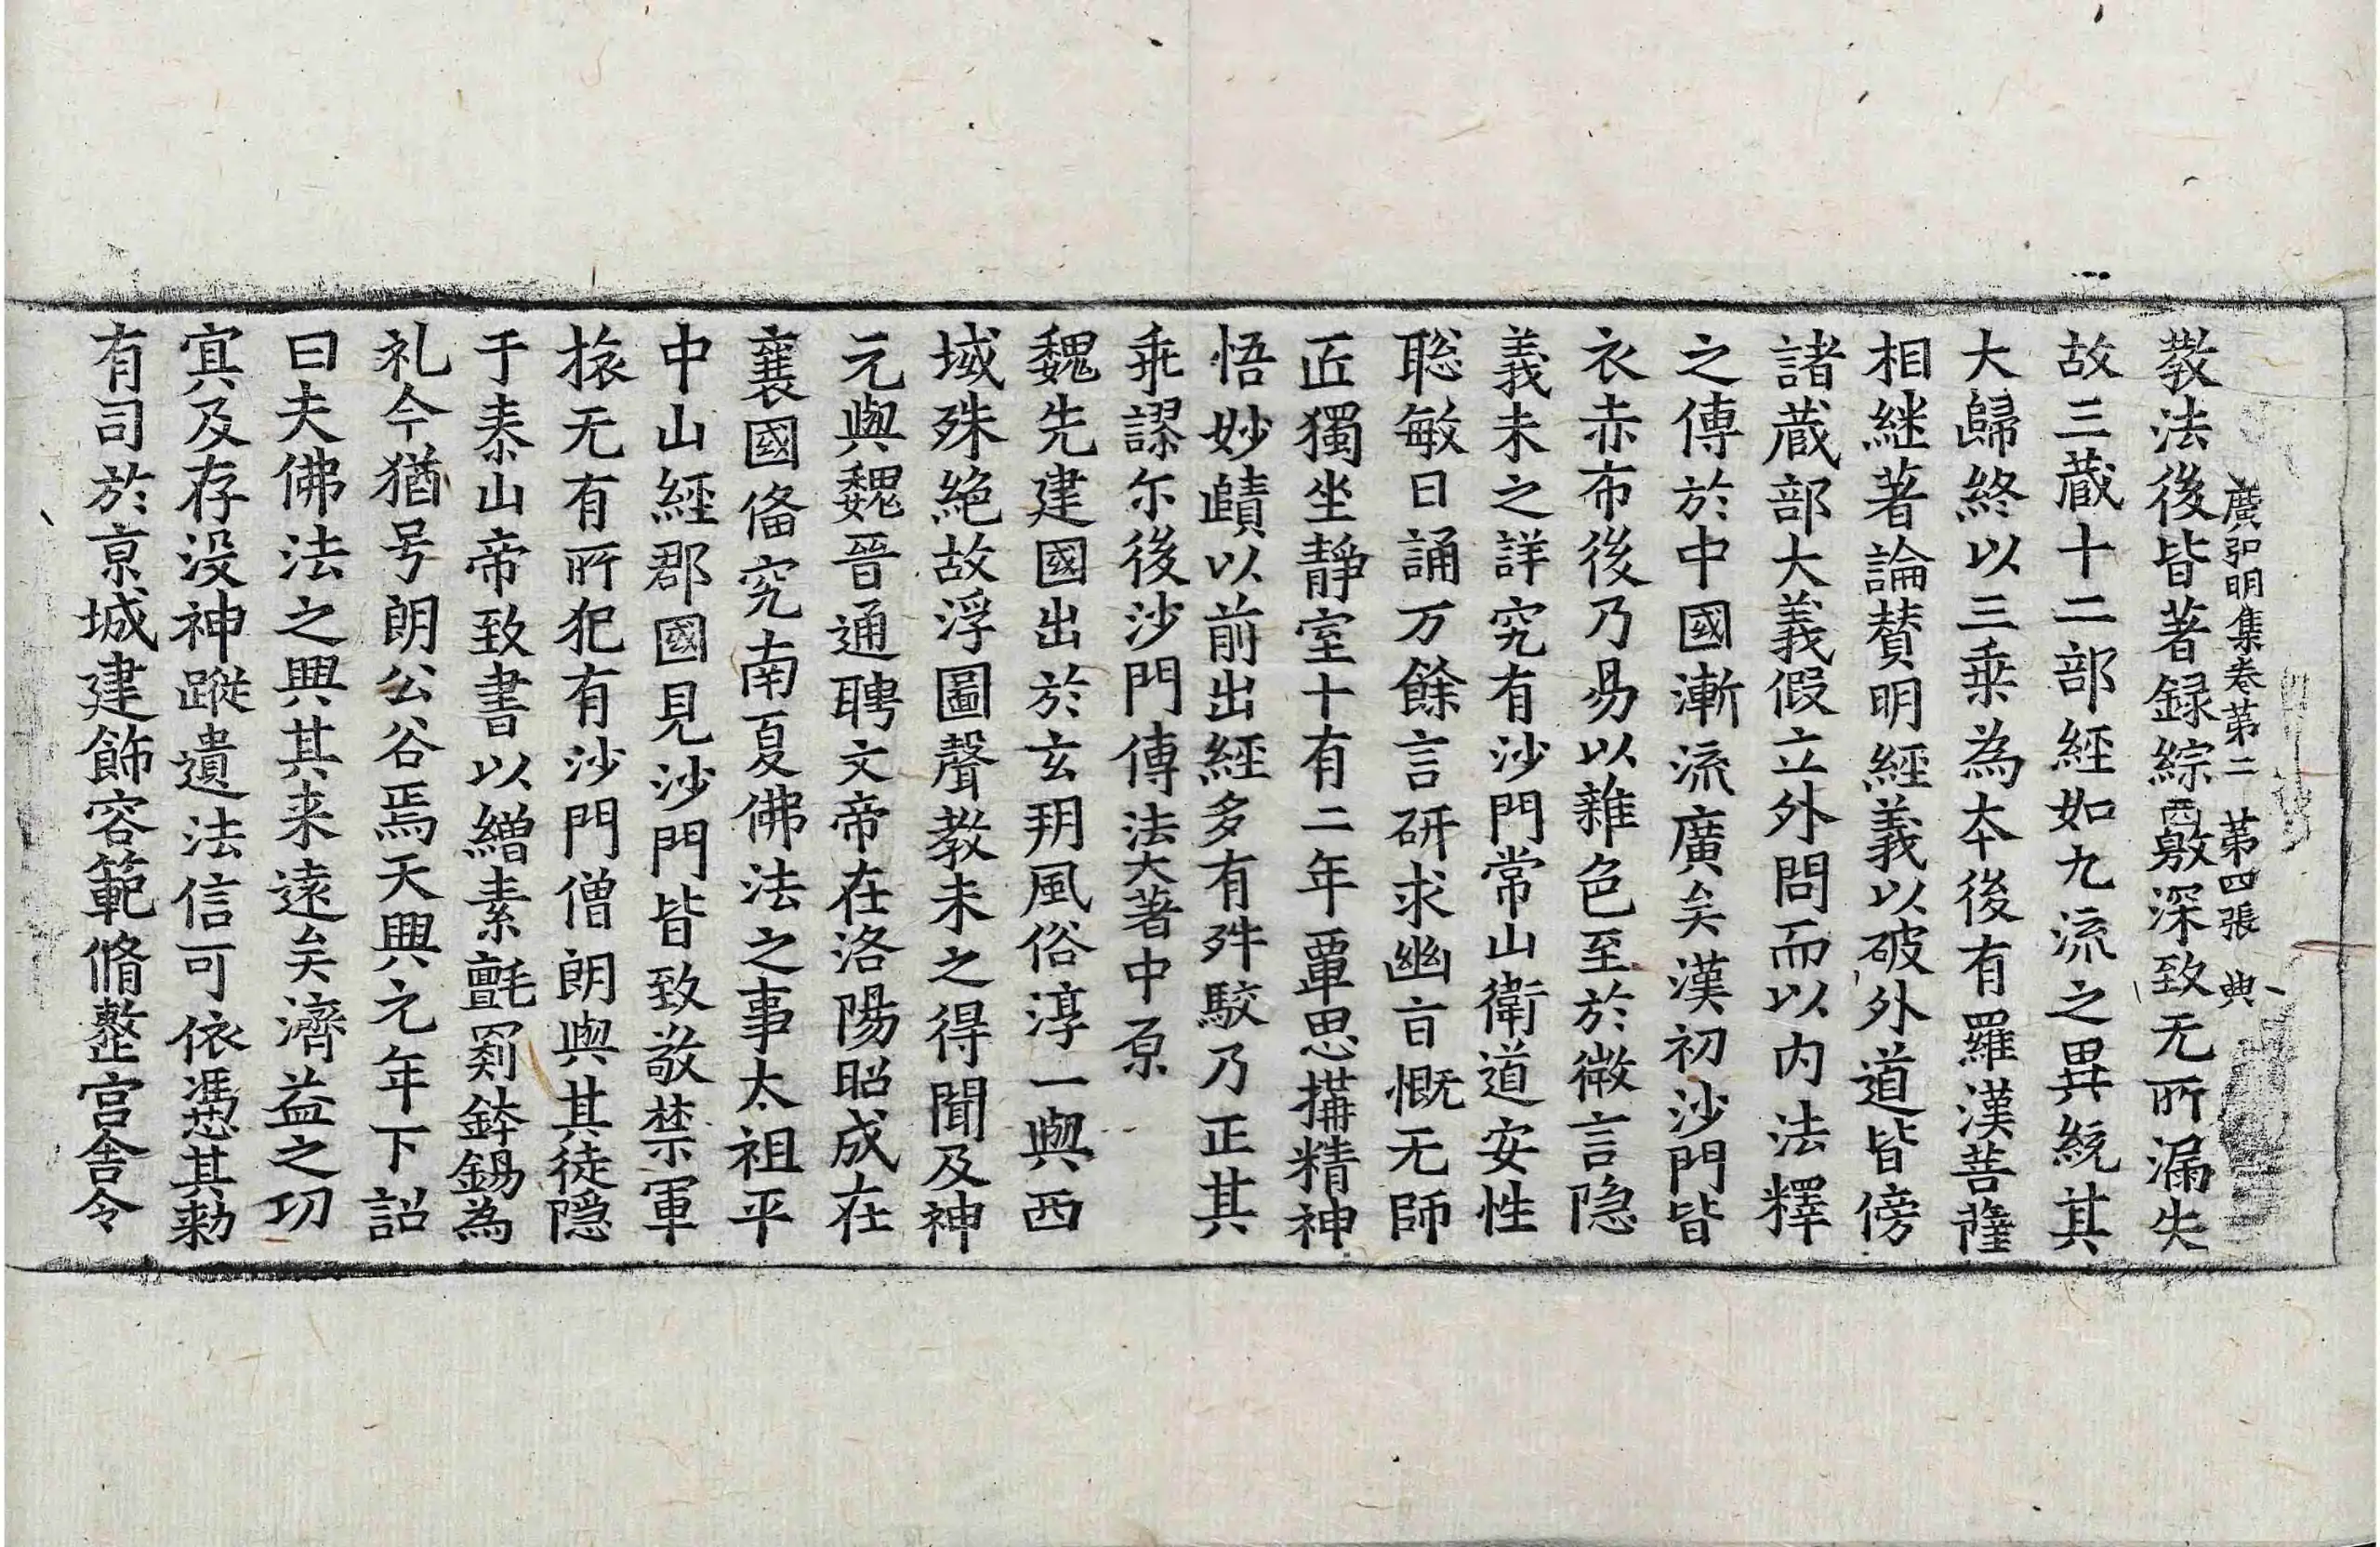 廣弘明集卷第二 第四張 典
教法後皆著録綜西敷深致无所漏失
故三蔵十二部經如九流之異統其
大歸終以三乗為夲後有羅漢菩薩
相継著論賛明經義以破外道皆傍
諸蔵部大義假立外問而以内法釋
之傳於中國漸流廣矣漢初沙門皆
衣赤布後乃易以雜色至於微言隠
義未之詳究有沙門常山衛道安性
聡敏日誦万餘言研求幽㫖慨无師
匠獨坐靜室十有二年覃思搆精神
悟妙賾以前出經多有舛駮乃正其
乖謬尓後沙門傳法大著中原
魏先建國出於玄朔風俗淳一與西
域殊絶故浮圖聲教未之得聞及神
元與魏晉通聘文帝在洛陽昭成在
襄國俻究南夏佛法之事太祖平
中山經郡國見沙門皆致敬禁軍
旅无有所犯有沙門僧朗與其徒隠
于泰山帝致書以繒素氈罽鉢錫為
礼今猶号朗公谷焉天興元年下詔
曰夫佛法之興其来遠矣濟益之功
冥及存没神蹤遺法信可依憑其勅
有司於京城建飾容範脩整宫舎令